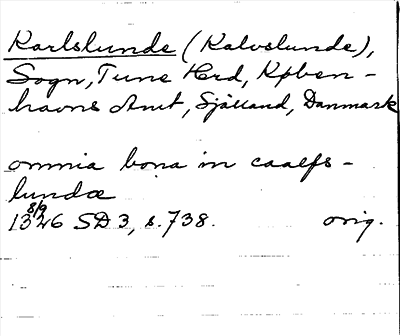 Karlslunde (Kalvslunde),
Sogn, Tune Hrd, Køben-
havns Amt, Sjælland, Danmark
omnia bona in caalfs-
lundæ
8/9
1346 SD 3, s. 738. orig.